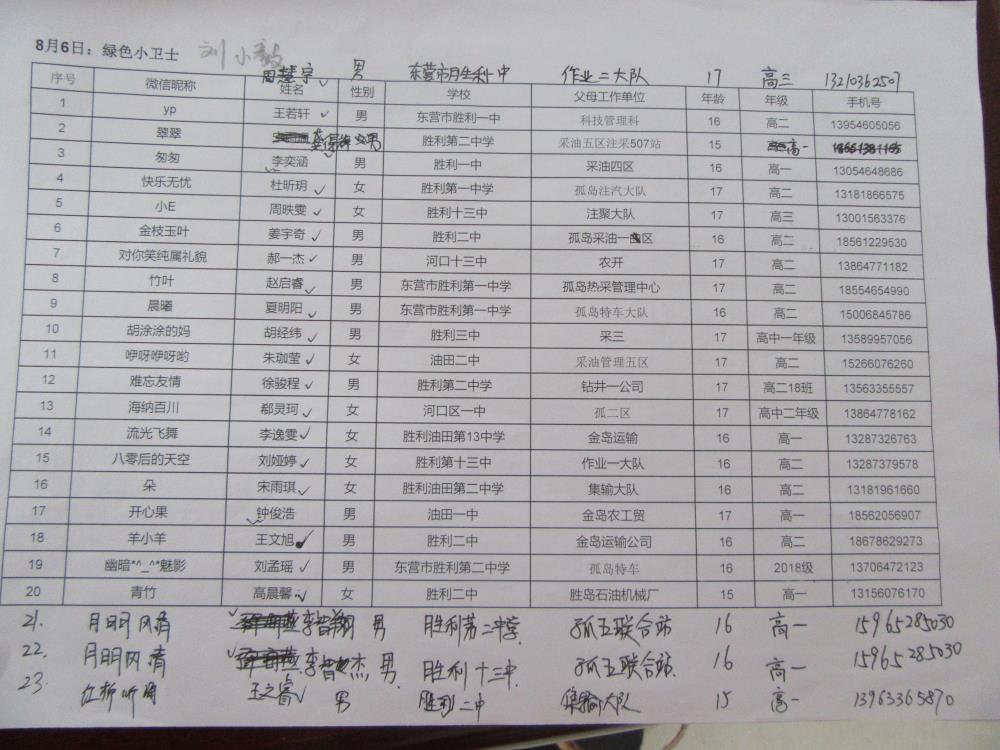 8月6日：绿色小卫士 刘小毅
周慧宇 男 东营市胜利一中 作业二大队 17 高三 13210362507
序号 微信昵称 姓名 性别 学校 父母工作单位 年龄 年级 手机号
1 yp 王若轩 男 东营市胜利一中 科技管理科 16 高二 13954605056
2 翠翠 男 胜利第二中学 采油五区注采507站 15 高一
3 匆匆 李奕涵 男 胜利一中 采油四区 16 高一 13054648686
4 快乐无忧 杜昕玥 女 胜利第一中学 孤岛注汽大队 17 高二 13181866575
5 小E 周昳雯 女 胜利十三中 注聚大队 17 高三 13001563376
6 金枝玉叶 姜宇奇 男 胜利二中 孤岛采油一区 16 高二 18561229530
7 对你笑纯属礼貌 郝一杰 男 河口十三中 农开 17 高二 13864771182
8 竹叶 赵启睿 男 东营市胜利第一中学 孤岛热采管理中心 17 高二 18554654990
9 晨曦 夏明阳 男 东营市胜利第一中学 孤岛特车大队 16 高二 15006845786
10 胡涂涂的妈 胡经纬 男 胜利三中 采三 17 高中一年级 13589957056
11 咿呀咿呀哟 朱珈莹 女 油田二中 采油管理五区 17 高二 15266076260
12 难忘友情 徐骏程 男 胜利第二中学 钻井一公司 17 高二18班 13563355557
13 海纳百川 郗灵珂 女 河口区一中 孤二区 17 高中二年级 13864778162
14 流光飞舞 李逸雯 女 胜利油田第13中学 金岛运输 16 高一 13287326763
15 八零后的天空 刘娅婷 女 胜利第十三中 作业一大队 16 高二 13287379578
16 朵 宋雨琪 女 胜利油田第二中学 集输大队 16 高二 13181961660
17 开心果 钟俊浩 男 油田一中 金岛农工贸 17 高一 18562056907
18 羊小羊 王文旭 男 胜利二中 金岛运输公司 16 高二 18678629273
19 幽暗*^_^*魅影 刘孟瑶 女 东营市胜利第二中学 孤岛特车 16 2018级 13706472123
20 青竹 高晨馨 女 胜利二中 胜岛石油机械厂 15 高一 13156076170
21. 月明风清 李智翔 男 胜利第二中学 孤五联合站 16 高一 15965285030
22. 月明风清 李智杰 男 胜利十三中 孤五联合站 16 高一 15965285030
23 红桥听雨 王之睿 男 胜利二中 集输大队 15 高一 13963365870